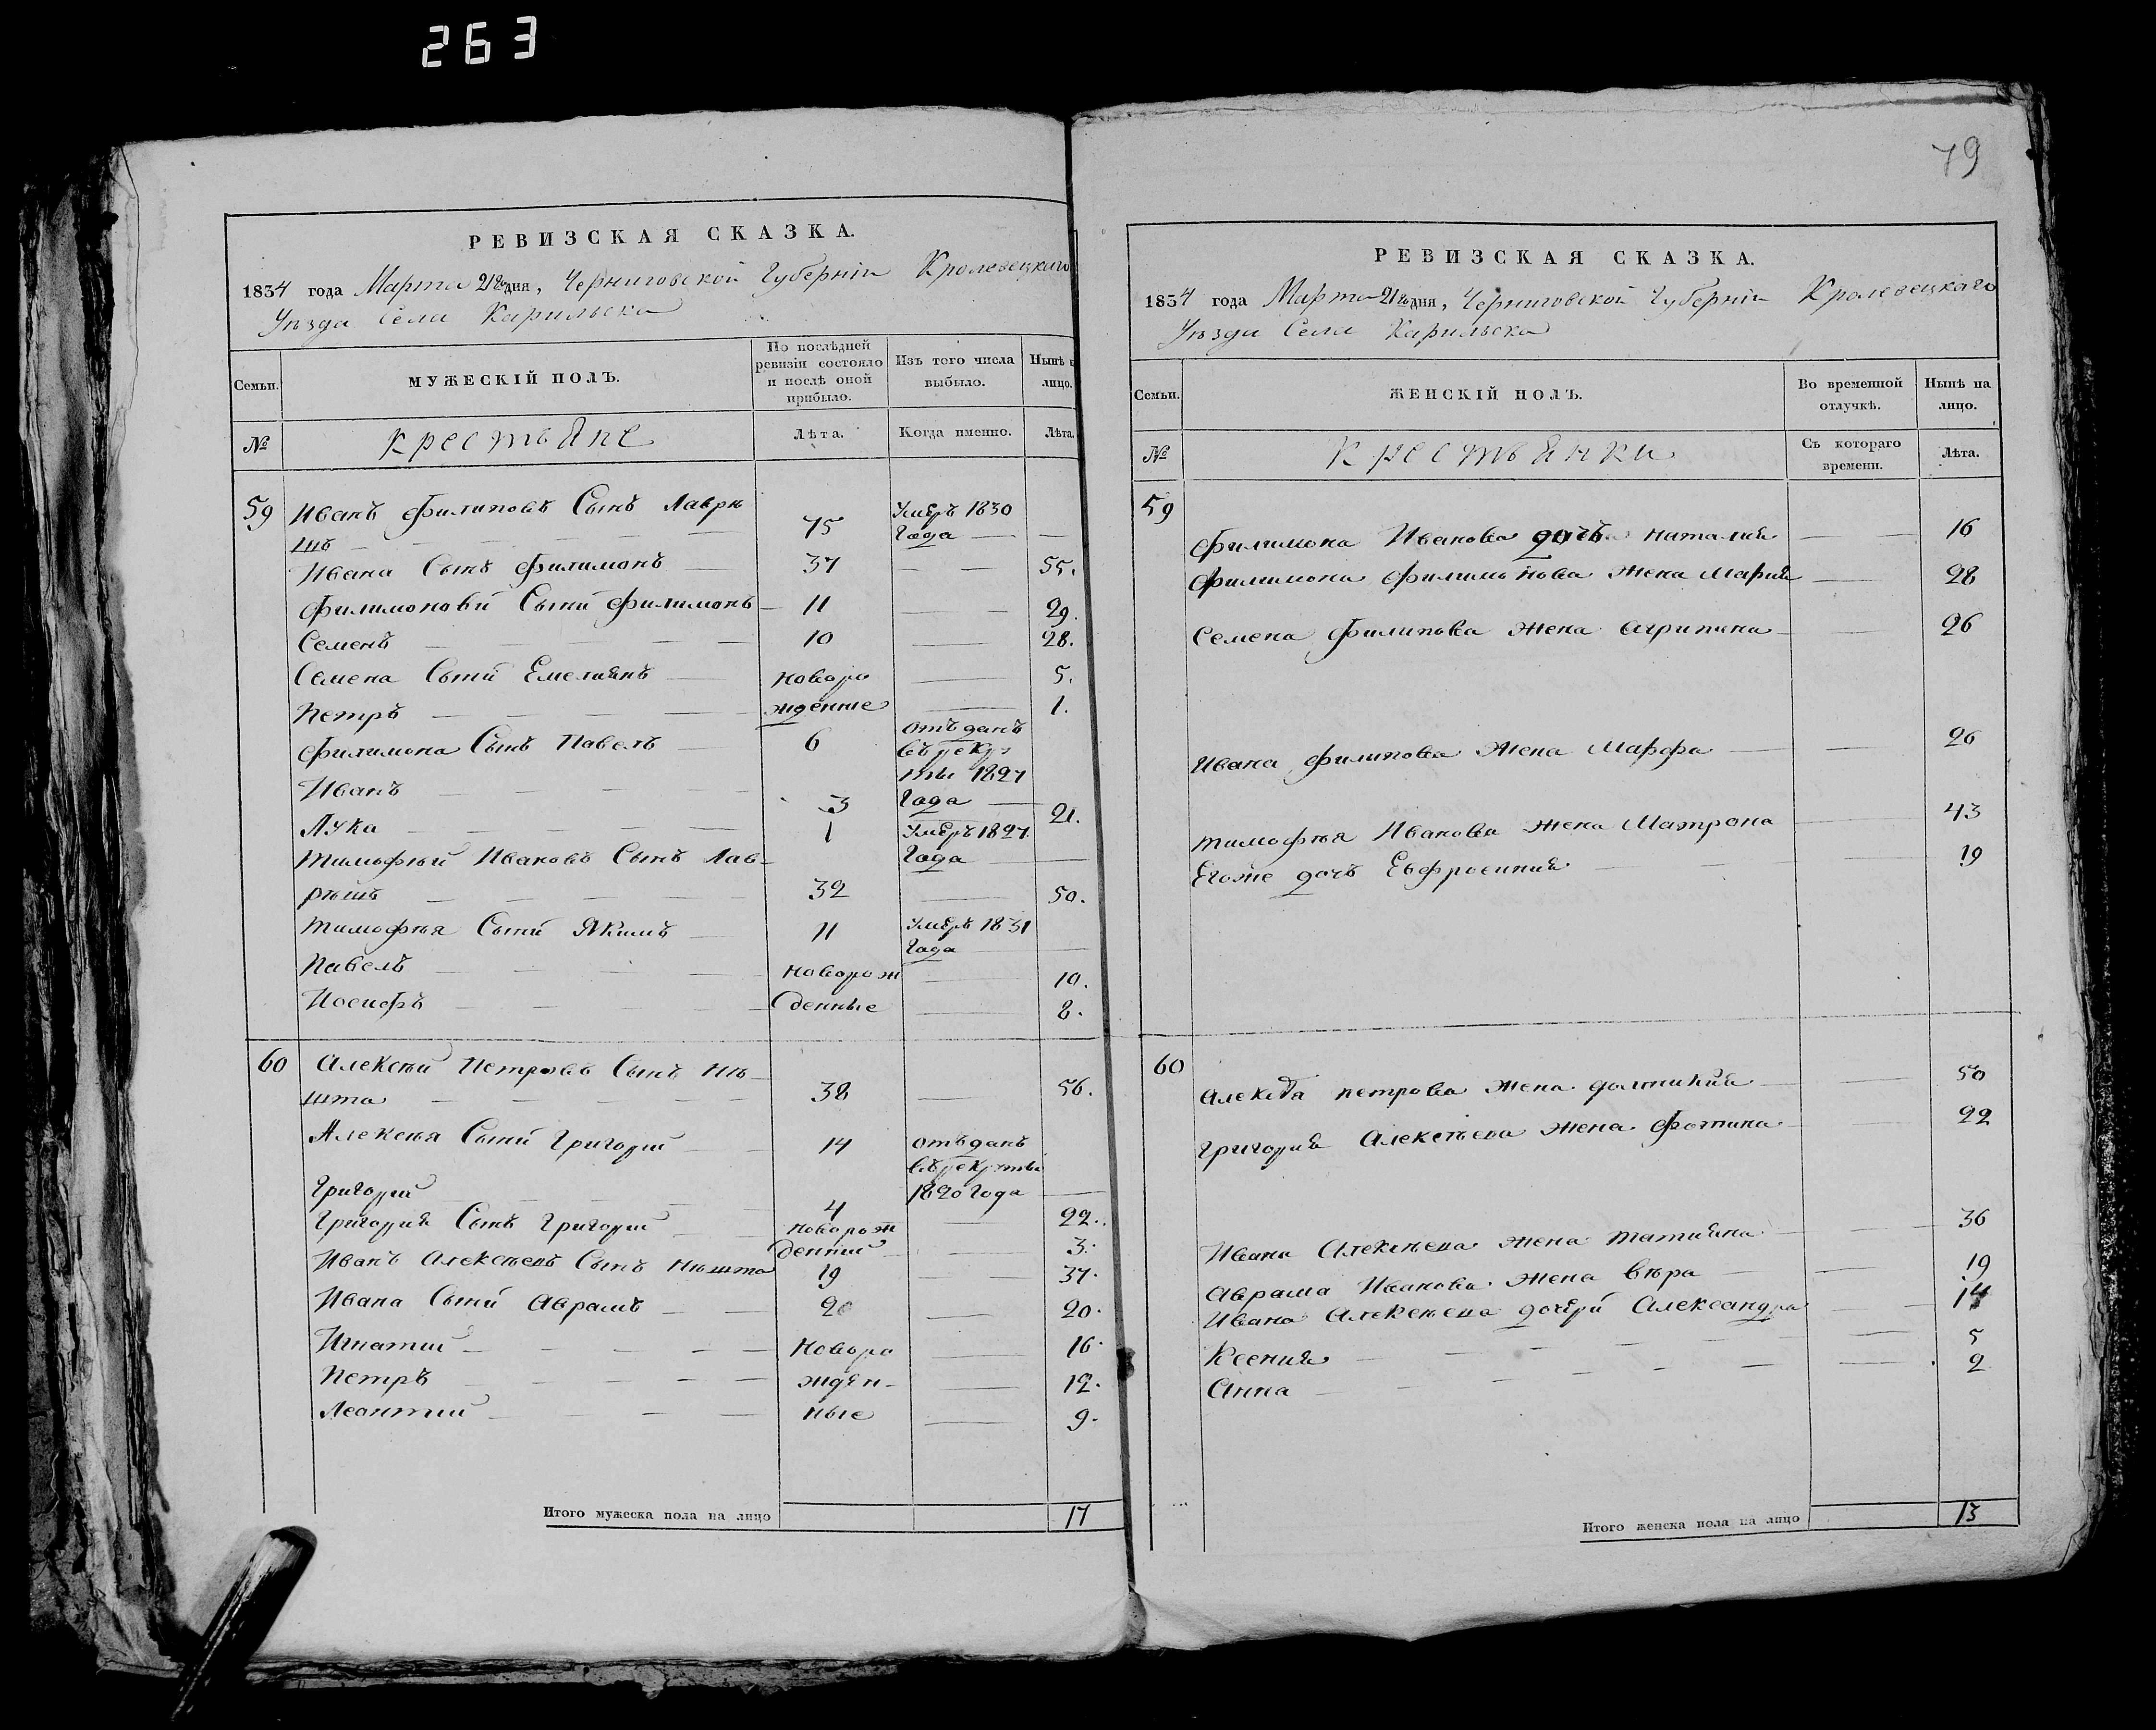 263
РЕВИЗСКАЯ СКАЗКА.
1834 года Марта 21го дня, Черниговской Губерніи Кролевецкаго
Уѣзда Села Карильска
Семьи.
МУЖЕСКІЙ ПОЛЪ.
По послѣдней ревизіи состояло и послѣ оной прибыло.
Изъ того числа выбыло.
Нынѣ на лицо.
№
Крестьяне
Лѣта.
Когда именно.
Лѣта.
59 Иванъ Филиповъ Сынъ Лаврѣ
шъ — 75 Умеръ 1830 Года —
Ивана Сынъ Филимонъ — 37 — 55.
Филимоновы Сыны Филимонъ — 11 — 29.
Семенъ — 10 — 28.
Семена Сыны Емелиянъ — новоро — 5.
Петръ — жденные — 1.
Филимона Сынъ Павелъ — 6 отъданъ въ рекру
ты 1827
Иванъ — 3 Года — 21.
Лука — 1 Умеръ 1827
Тимофѣй Ивановъ Сынъ Лав- Года —
рѣшъ — 32 — 50.
Тимофѣя Сыны Якимъ — 11 Умеръ 1831 Года —
Павелъ — новорож — 10.
Иосифъ — денные — 8.
60 Алексѣй Петровъ Сынъ Нѣ-
шта — 38 — 56.
Алексѣя Сыны Григорий — 14 отъданъ
въ рекруты
Григорий — 4 1820 Года — 22.
Григория Сынъ Григорий — новорож
денный — 3.
Иванъ Алексѣевъ Сынъ Нѣшта 19 — 37.
Ивана Сыны Аврамъ — 2 — 20.
Игнатий — новоро — 16.
Петръ — жден- — 12.
Леонтий — ные — 9.
Итого мужеска пола на лицо 17
79
РЕВИЗСКАЯ СКАЗКА.
1834 года Марта 21го дня, Черниговской Губерніи Кролевецкаго
Уѣзда Села Карильска
Семьи.
ЖЕНСКІЙ ПОЛЪ.
Во временной отлучкѣ.
Нынѣ на лицо.
№
Крестьянки
Съ котораго времени.
Лѣта.
59
Филимона Иванова дочь Наталия — 16
Филимона Филимонова жена Мария — 28
Семена Филипова жена Агрипина — 26
Ивана Филипова жена Марфа — 26
Тимофѣя Иванова жена Матрона — 43
Егоже дочь Евфросиния — 19
60
Алексѣя Петрова жена Домникия — 50
Григория Алексѣева жена Фотина — 22
Ивана Алексѣева жена Татияна — 36
Аврама Иванова жена Вѣра — 19
Ивана Алексѣева дочери Александра — 14
Ксения — 5
Анна — 2
Итого женска пола на лицо 13